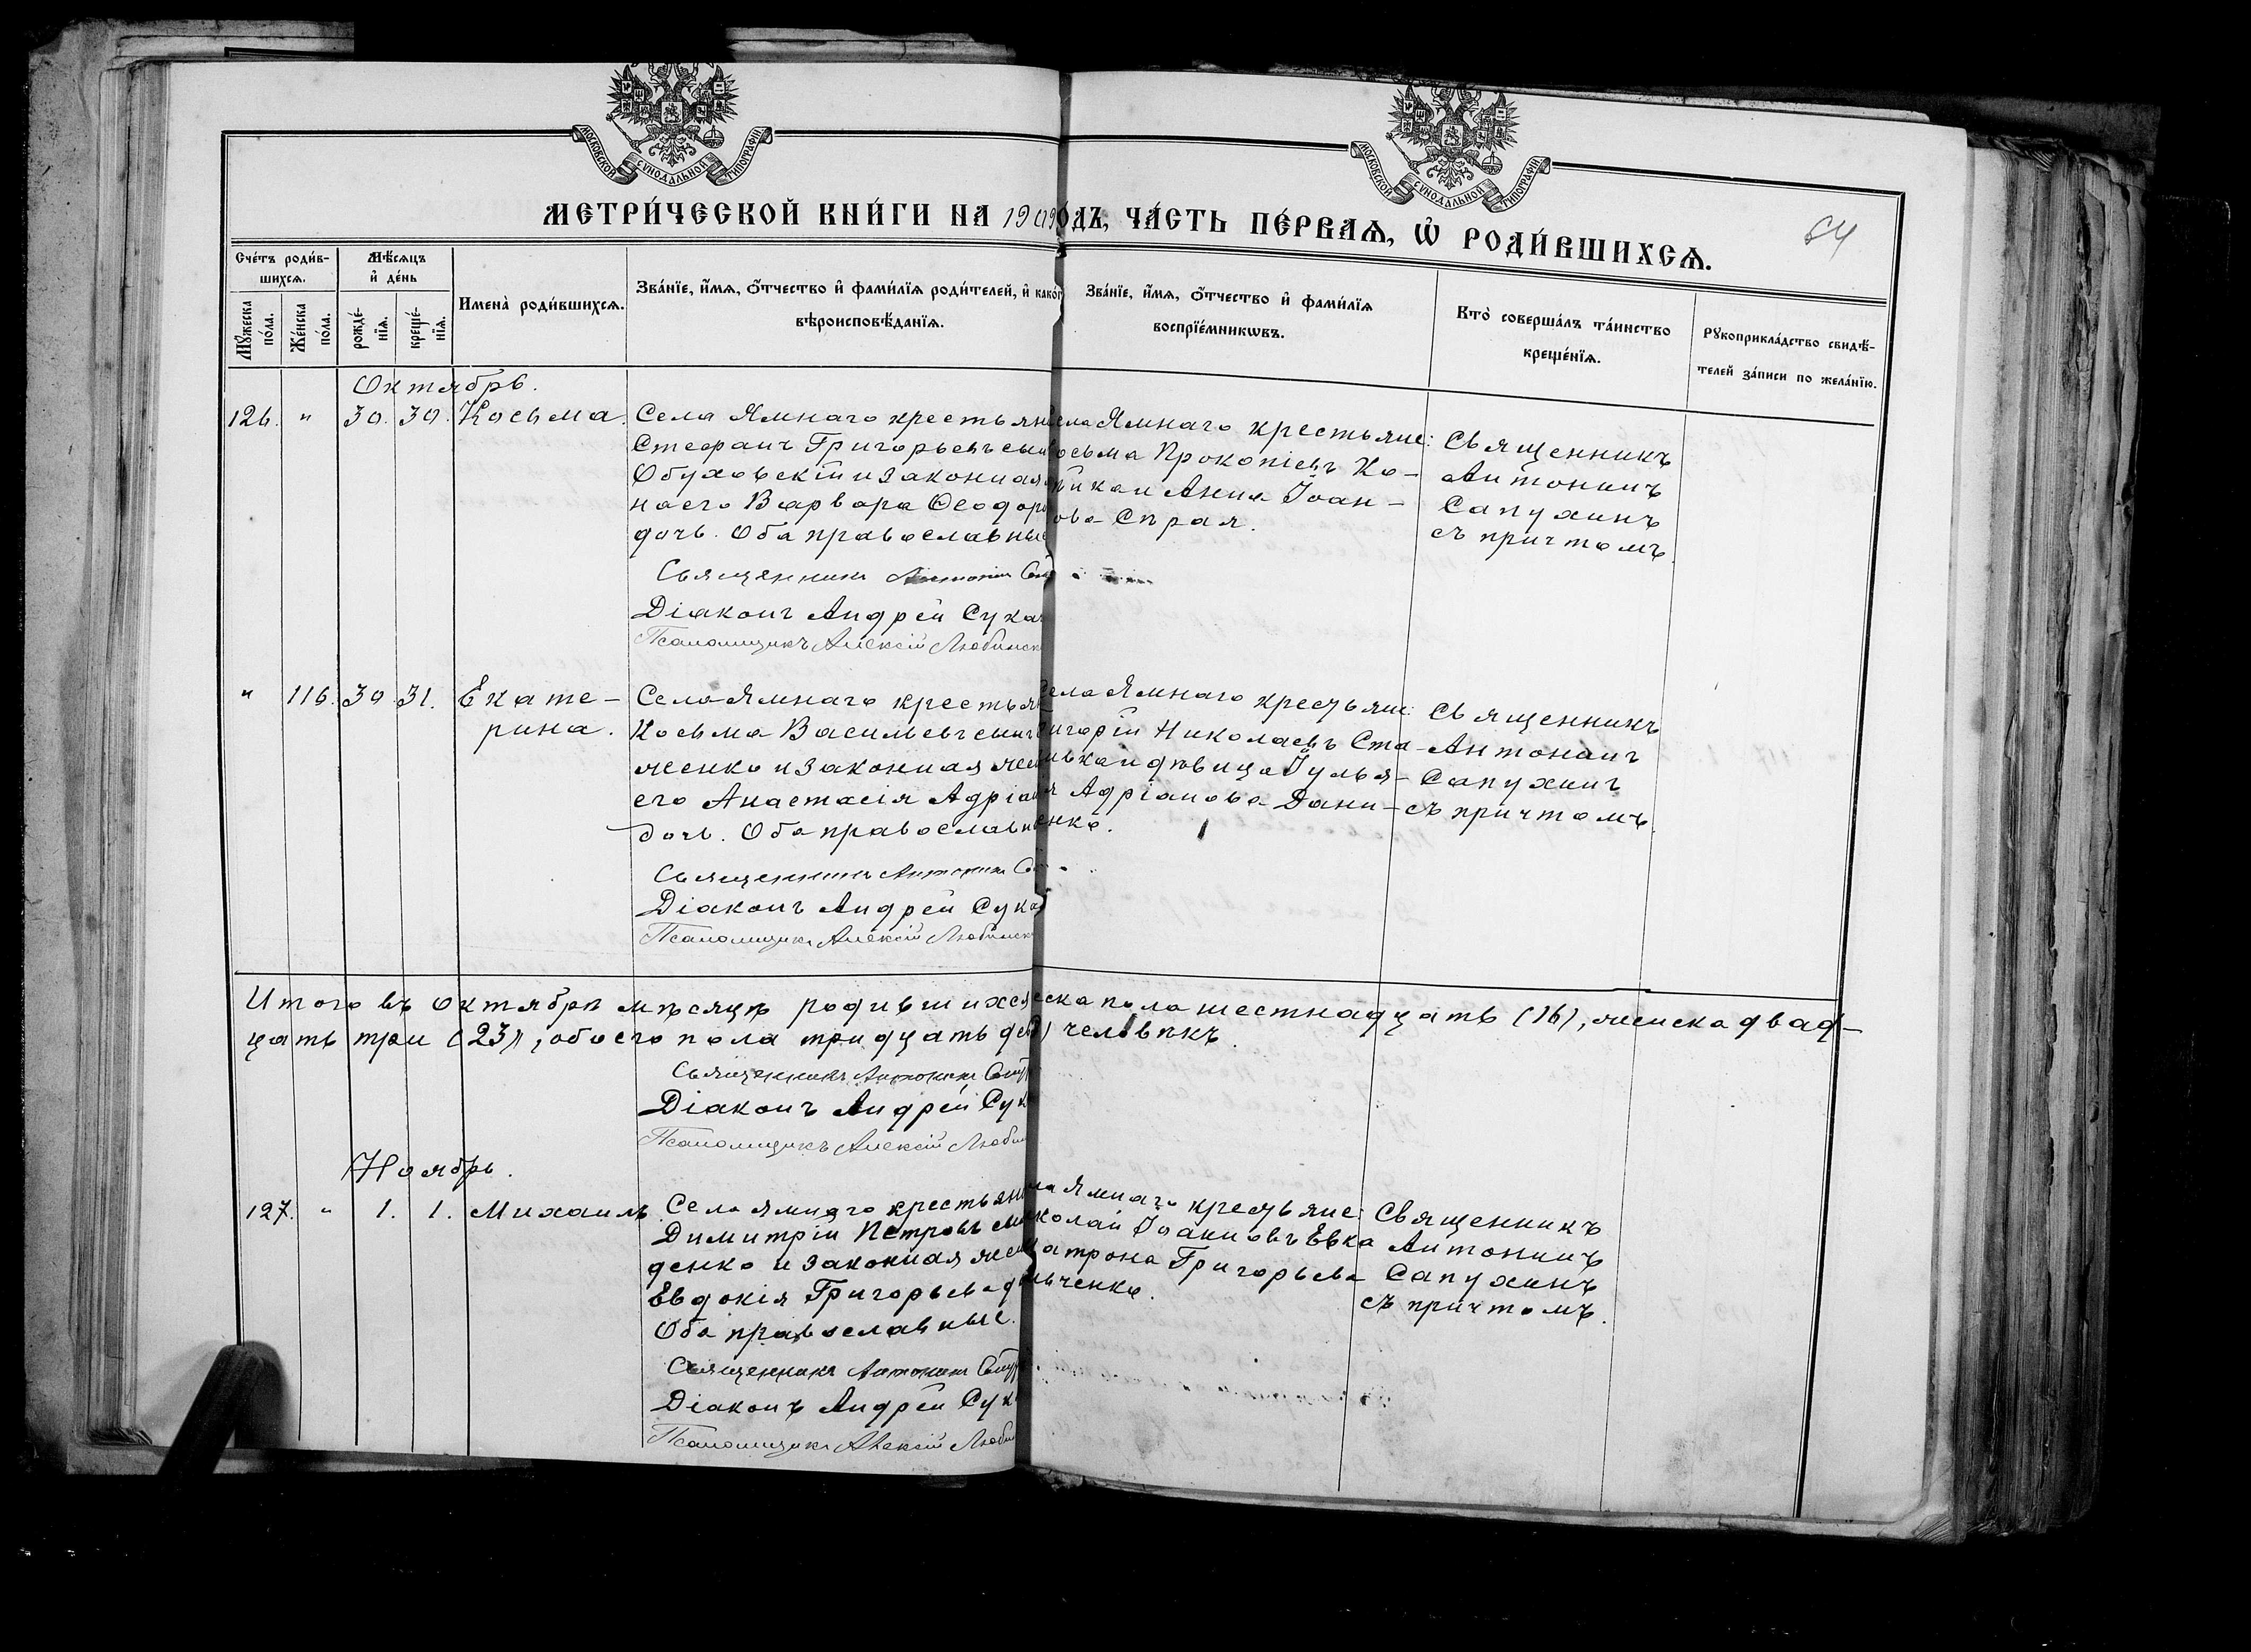 МОСКОВСКОЙ СУНОДАЛЬНОЙ ТИПОГРАФІИ
МОСКОВСКОЙ СУНОДАЛЬНОЙ ТИПОГРАФІИ
МЕТРИ́ЧЕСКОЙ КНИ́ГИ НА 1909 ЧА́СТЬ ПЕ́РВАѦ, Ѽ РОДИ́ВШИХСѦ.
64
Сче́тъ роди́в-
шихсѧ.
Мꙋжеска по́ла.
Же́нска по́ла.
Мѣ́сѧцъ
и҆ де́нь
рожде́-
нїѧ.
креще́-
нїѧ.
Имена̀ роди́вшихсѧ.
Зва́нїе, и҆́мѧ, ѻ҆́тчество и҆ фами́лїѧ роди́телей, и҆
вѣроисповѣ́данїѧ.
Зва́нїе, и҆́мѧ, ѻ҆́тчество и҆ фами́лїѧ
воспрїе́мникѡвъ.
Кто̀ соверша́лъ та́инство
креще́нїѧ.
Рꙋкоприкла́дство свидѣ́-
телей за́писи по жела́нїю.
Октябрь.
126. " 30. 30. Косьма.
Села Ямнаго крестьян
Стефанъ Григорьевъ сын
Обуховскій и законная
на его Варвара Ѳеодор
дочь. Оба православны
Священникъ Антонин
Діаконъ Андрей Сука
Псаломщикъ Алексій Любинск
ела Ямнаго крестьяне:
осьма Прокопіевъ Ко-
и Анна Іоан-
ова Сѣрая.
Священникъ
Антонинъ
Сапухинъ
съ причтомъ.
" 116. 30. 31. Екате-
рина.
Села Ямнаго крестья
Косьма Васильевъ сынъ
сенко и законная жен
его Анастасія Адріан
дочь. Оба православн
Священникъ Антонин
Діаконъ Андрей Сука
Псаломщикъ Алексій Любинск
ела Ямнаго крестьяне:
игорій Николаевъ Ста-
нько и дѣвица Іулья-
я Адріанова Дани-
енко.
Священникъ
Антонинъ
Сапухинъ
съ причтомъ.
Итого въ октябрѣ мѣсяцѣ родившихся еска пола шестнадцать (16), женска двад-
цать три (23), обоего пола тридцать дев) человѣкъ.
Священникъ Антонин Сапу
Діаконъ Андрей Сук
Псаломщикъ Алексій Люби
Ноябрь.
127. " 1. 1. Михаилъ.
Села Ямнаго крестьяни
Димитрій Петровъ
денко и законная жен
Евдокія Григорьева д
Оба православные.
Священникъ Антонин Сапу
Діаконъ Андрей Сук
Псаломщикъ Алексій Люби
ла Ямнаго крестьяне:
колай Іоанновъ Евка
атрона Григорьева
льченко.
Священникъ
Антонинъ
Сапухинъ
съ причтомъ.